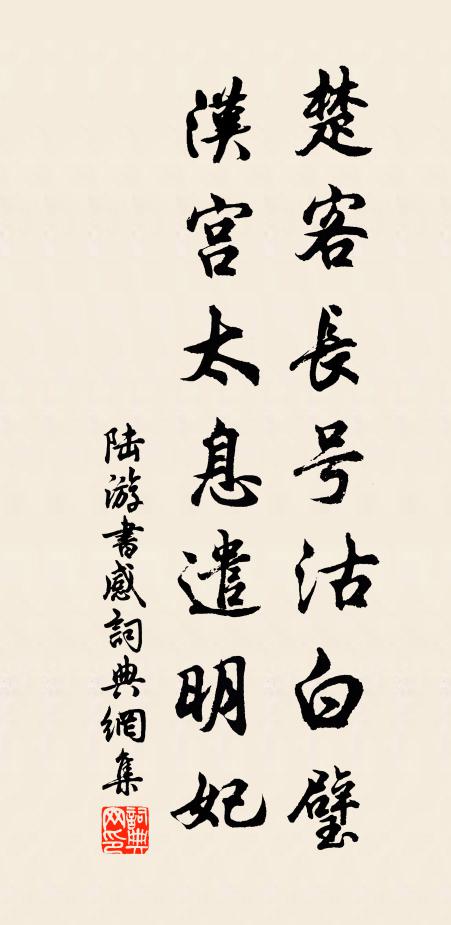 楚客長号沽白璧
漢宫太息遣明妃
陆游書感詞典網集
詞典网印